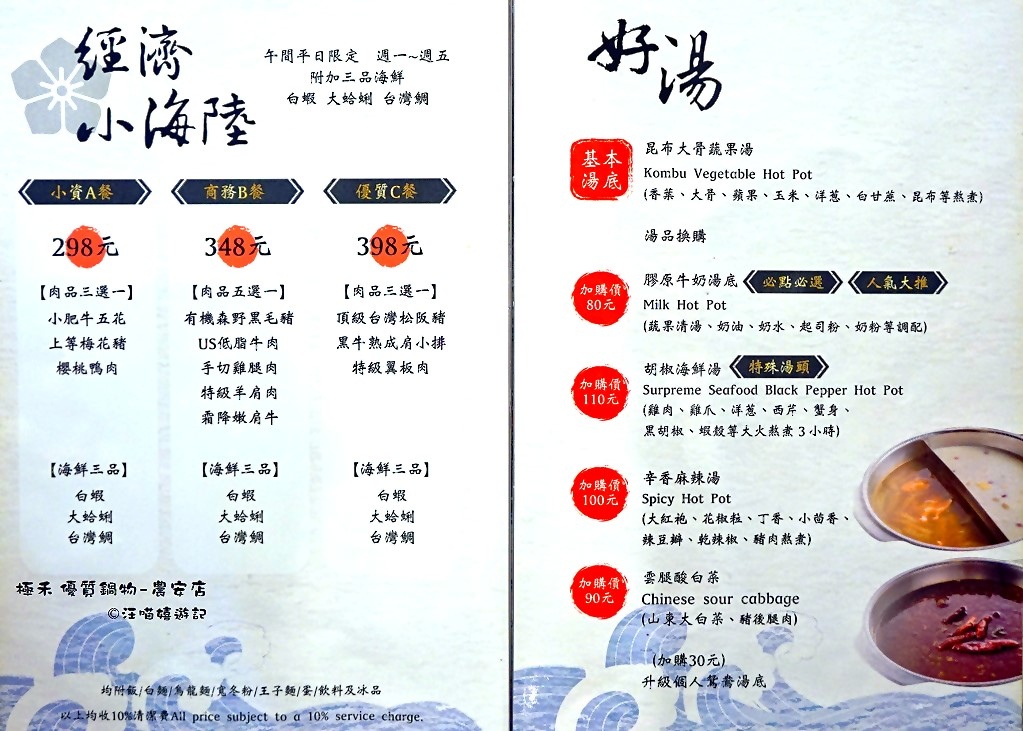 經濟
小海陸
午間平日限定 週一~週五
附加三品海鮮
白蝦 大蛤蜊 台灣鯛
小資A餐
298元
【肉品三選一】
小肥牛五花
上等梅花豬
櫻桃鴨肉
【海鮮三品】
白蝦
大蛤蜊
台灣鯛
商務B餐
348元
【肉品五選一】
有機森野黑毛豬
US低脂牛肉
手切雞腿肉
特級羊肩肉
霜降嫩肩牛
【海鮮三品】
白蝦
大蛤蜊
台灣鯛
優質C餐
398元
【肉品三選一】
頂級台灣松阪豬
黑牛熟成肩小排
特級翼板肉
【海鮮三品】
白蝦
大蛤蜊
台灣鯛
極禾 優質鍋物-農安店
©汪喵嬉遊記
均附飯/白麵/烏龍麵/寬冬粉/王子麵/蛋/飲料及冰品
以上均收10%清潔費All price subject to a 10% service charge.
好湯
基本
湯底
昆布大骨蔬果湯
Kombu Vegetable Hot Pot
(香菜、大骨、蘋果、玉米、洋蔥、白甘蔗、昆布等熬煮)
湯品換購
加購價
80元
膠原牛奶湯底 必點必選 人氣大推
Milk Hot Pot
(蔬果清湯、奶油、奶水、起司粉、奶粉等調配)
加購價
110元
胡椒海鮮湯 特殊湯頭
Surpreme Seafood Black Pepper Hot Pot
(雞肉、雞爪、洋蔥、西芹、蟹身、
黑胡椒、蝦殼等大火熬煮3小時)
加購價
100元
辛香麻辣湯
Spicy Hot Pot
(大紅袍、花椒粒、丁香、小茴香、
辣豆瓣、乾辣椒、豬肉熬煮)
加購價
90元
雲腿酸白菜
Chinese sour cabbage
(山東大白菜、豬後腿肉)
(加購30元)
升級個人鴛鴦湯底